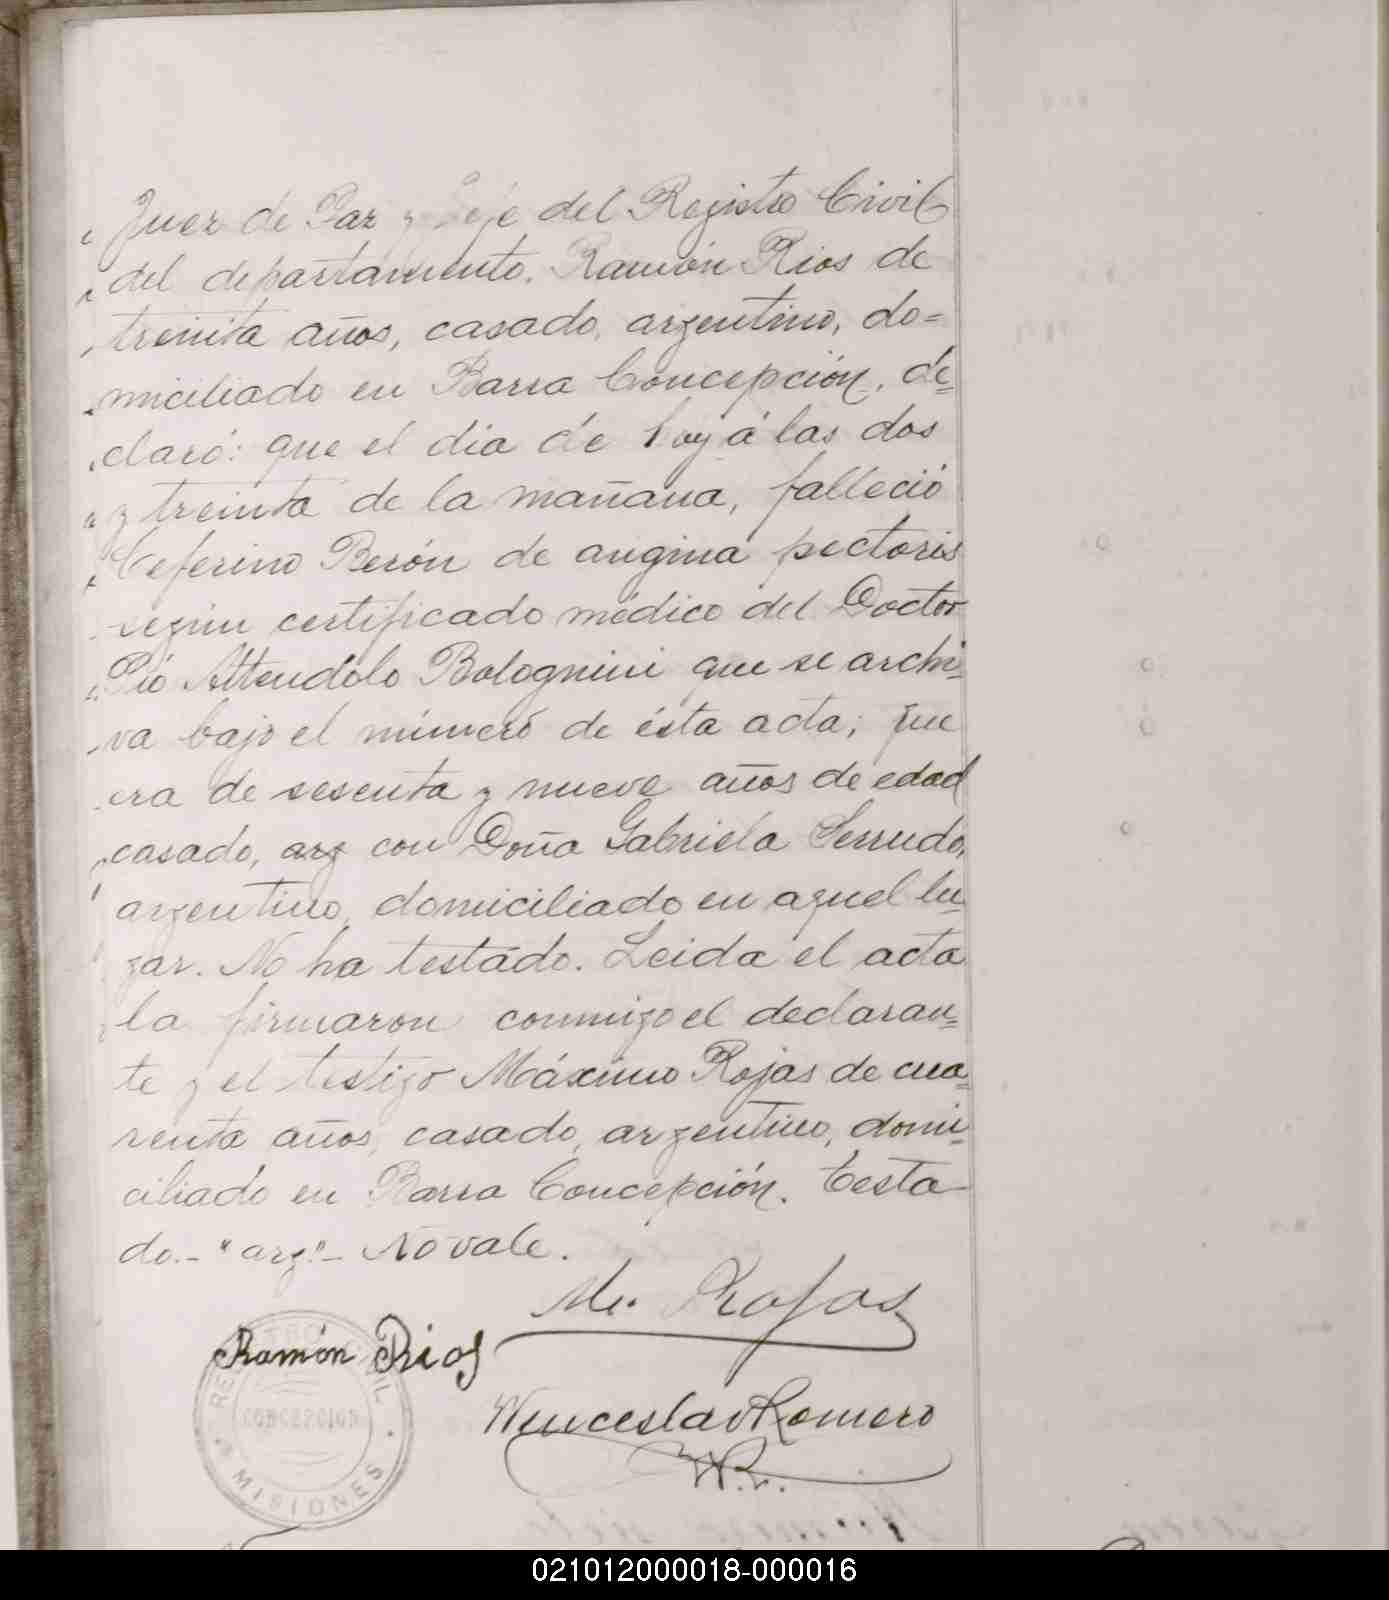 Juez de Paz y Jefe del Registro Civil
del departamento. Ramón Rios de
treinta años, casado, argentino, do=
miciliado en Barra Concepción, de=
claró: que el dia de hoy á las dos
y treinta de la mañana, falleció
Ceferino Berón de angina pectoris
según certificado médico del Doctor
Pío Attendolo Bolognini que se archi=
va bajo el número de ésta acta; que
era de sesenta y nueve años de edad
casado, arg con Doña Gabriela Serrudo,
argentino, domiciliado en aquel lu=
gar. No ha testado. Leida el acta
la firmaron conmigo el declaran=
te y el testigo Máximo Rojas de cua=
renta años, casado, argentino, domi=
ciliado en Barra Concepción. Testa
do.- "arg"- No vale.
Me. Rojas
Ramón Rios
Wenceslao Romero
W.R.
REGISTRO CIVIL
CONCEPCION
MISIONES
021012000018-000016